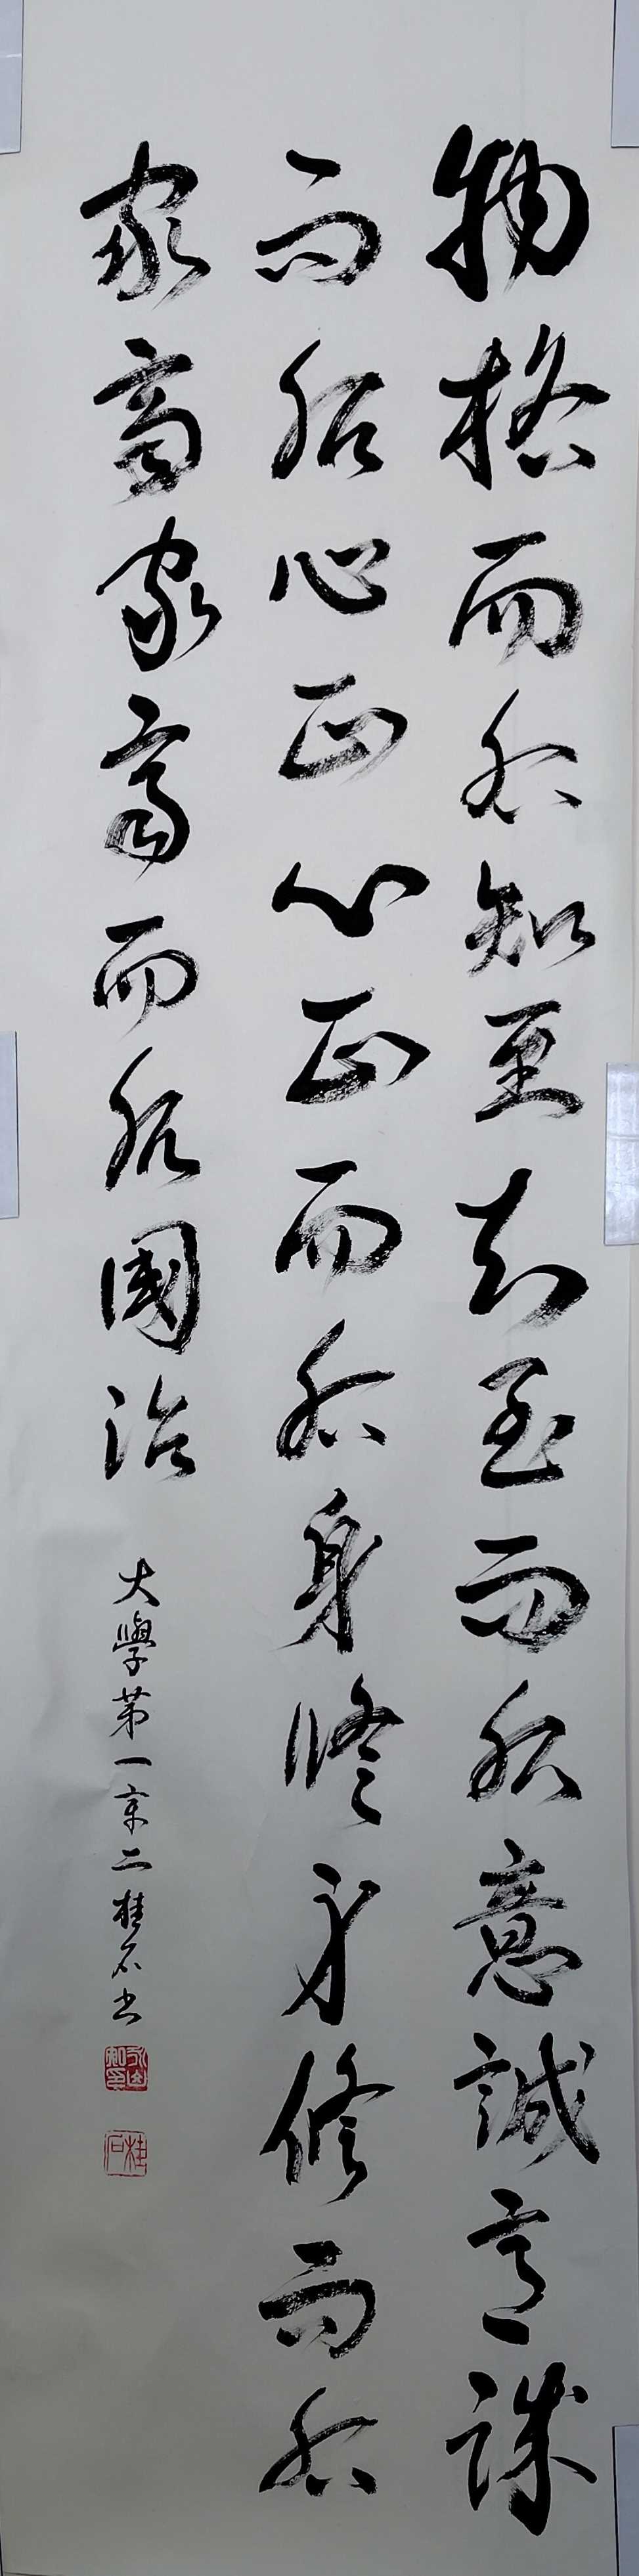 物格而后知至知至而后意誠意誠
而后心正心正而后身修身修而后
家齊家齊而后國治
大學第一章二桂石書
桂石